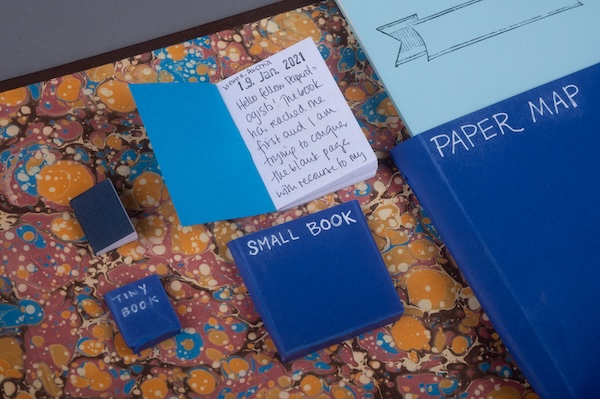 Wels, Austria
19. Jan. 2021
Hello fellow Paperol-
ogists! The book
has reached me
first and I am
trying to conquer
the blank page
with recourse to my
PAPER MAP
SMALL BOOK
TINY
BOOK